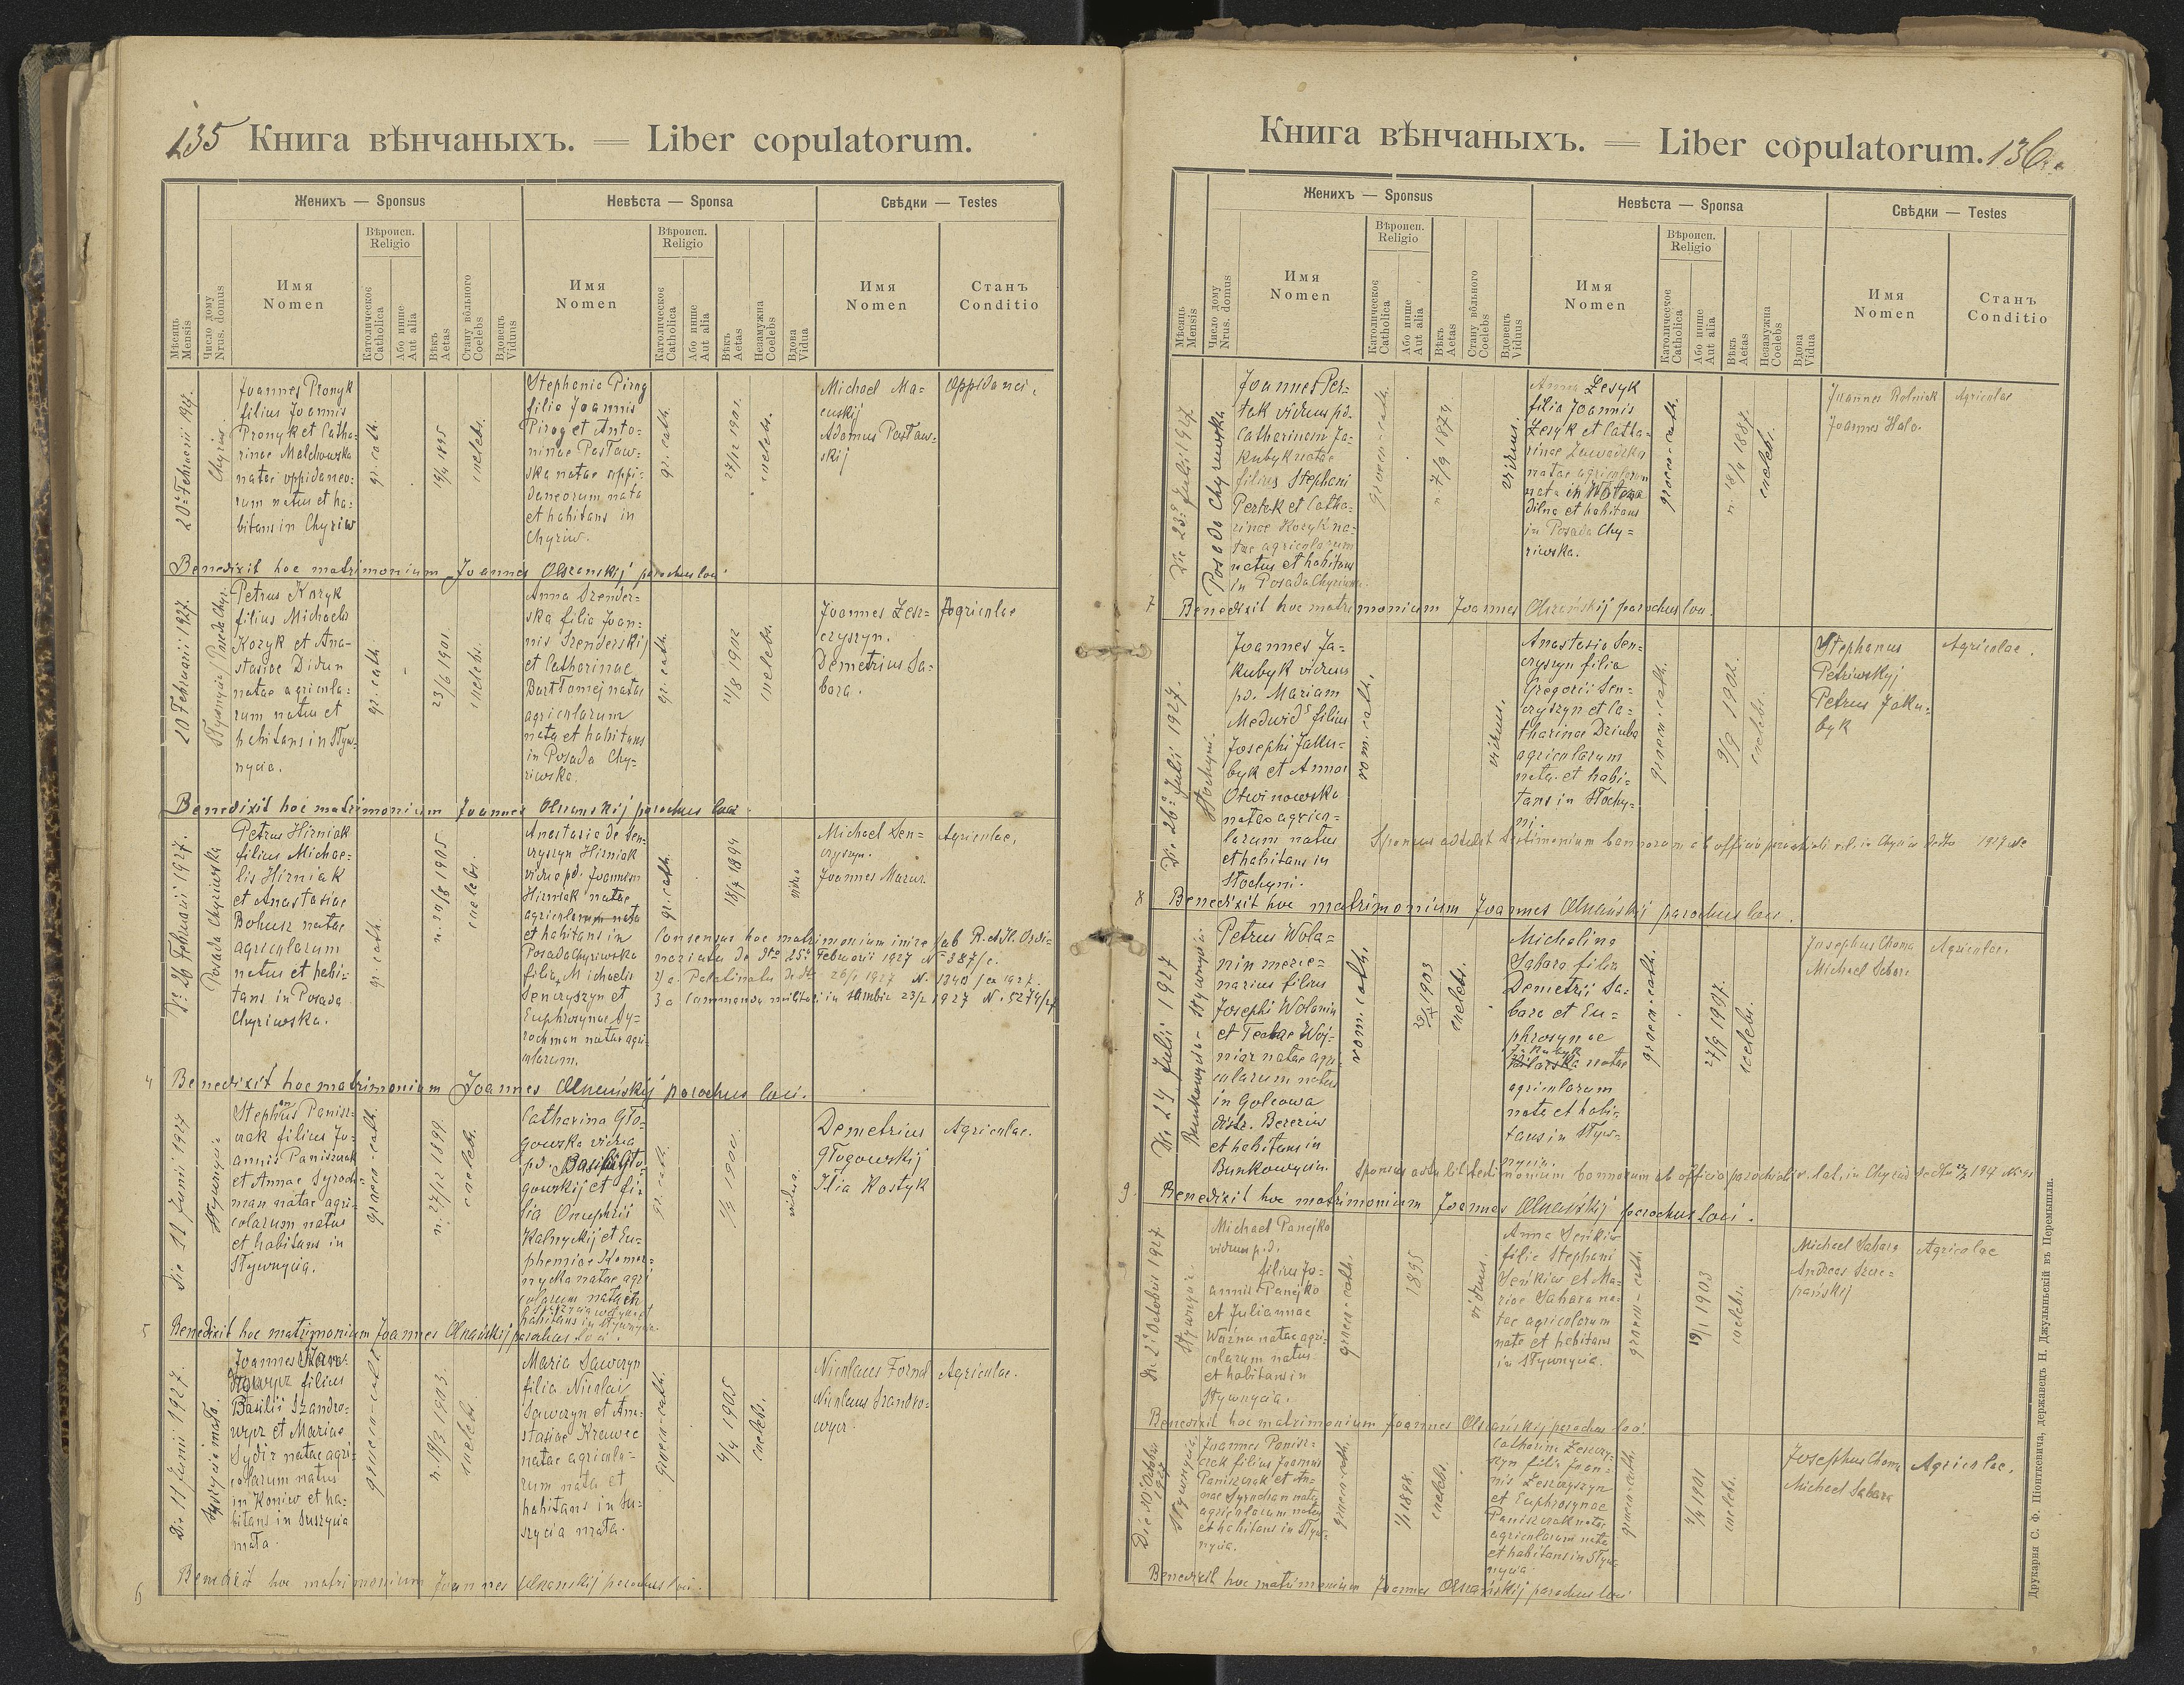 135 Книга вѣнчаныхъ. — Liber copulatorum.
Женихъ — Sponsus
Невѣста — Sponsa
Свѣдки — Testes
Мѣсяць Mensis
Число дому Nrus. domus
Имя
Nomen
Вѣроисп.
Religio
Католическое Catholica
Або инше Aut alia
Вѣкъ Aetas
Стану вôльного Coelebs
Вдовець Viduus
Имя
Nomen
Вѣроисп.
Religio
Католическое Catholica
Або инше Aut alia
Вѣкъ Aetas
Незамужна Coelebs
Вдова Vidua
Имя
Nomen
Станъ
Conditio
Chyriw.
Joannes Pronyk
filius Joannis
Pronyk et Catha=
rinae Melchowska
natae oppidaneo=
rum natus et ha=
bitans in Chyriw
gr. cath.
19/4 1895
coelebs.
Stephania Pirog
filia Joannis
Pirog et Anto=
ninae Postaw=
ska natae oppi=
daneorum nata
et habitans in
Chyriw.
gr. cath.
27/12 1901.
coelebs.
Michael Ma=
cuskij
Adamus Postaw=
skij
Oppidanei
Benedixit hoc matrimonium Joannes Olszanskij parochus loci
20 Februarii 1927.
Petrus Kozyk
filius Michaelis
Kozyk et Ana=
stasiae Didun
natae agricola=
rum natus et
habitans in Styw=
nycia.
gr. cath
23/6 1901.
coelebs.
Anna Szender=
ska filia Joan=
nis Szenderskij
et Catharinae
Bartłomej natae
agricolarum
nata et habitans
in Posada Chy=
riwska.
gr. cath.
21/8 1902
coelebs.
Joannes Lesz=
czyszyn.
Demetrius Sa=
bara.
Agricolae
Benedixit hoc matrimonium Joannes Olszanskij parochus loci
Die 26 Februarii 1927.
Posada Chyriwska
Petrus Hirniak
filius Michae=
lis Hirniak
et Anastasiae
Bohusz natae
agricolarum
natus et habi=
tans in Posada
Chyriwska.
gr. cath.
n. 20/8 1905
coelebs.
Anastasia de Sen=
czyszyn Hirniak
vidua pd. Joannem
Hirniak natae
agricolarum nata
et habitans in
Posada Chyriwska
filia Michaelis
Senczyszyn et
Euphrosynae Sy=
rochman natae agri=
colarum.
gr. cath.
18/7 1894
vidua
Michael Sen=
czyszyn.
Joannes Mazur.
Agricolae.
Consensus hoc matrimonium inire
4 Benedixit hoc matrimonium Joannes Olszańskij parochus loci.
Stywnycia
Stephanus Panisz=
czak filius Jo=
annis Paniszczak
et Annae Syroch=
man natae agri=
colarum natus
et habitans in
Stywnycia.
graeco-cath.
n. 27/12 1899
coelebs.
Catharina Gło=
gowska vidua
pd. Basilii Gło=
gowskij et fi=
lia Onuphrii
Kalnyckij et Eu=
phemiae Komar=
nycka natae agri
colarum nata
gr. cath.
vidua.
Demetrius
Głogowskij
Ilia Kostyk
Agricolae.
5 Benedixit hoc matrimonium Joannes Olszańskij parochus loci.
Die 11 Junii 1927.
filius
Basilii Szandro=
wycz et Mariae
Sydir natae agri=
colarum natus
in Koniw et ha=
bitans in Suszycia
mała.
graeco-cath.
n. 19/3 1903.
coelebs
Maria Sawczyn
filia Nicolai
Sawczyn et Ana=
stasiae Krawec
natae agricola=
rum nata et
habitans in Su=
szycia mała.
graeco-cath.
4/4 1905
coelebs.
Nicolaus Fornal
Nicolaus Szandro=
wycz.
Agricolae.
6 Benedixit hoc matrimonium Joannes Olszanskij parochus loci.
Книга вѣнчаныхъ. — Liber copulatorum. 136
Женихъ — Sponsus
Невѣста — Sponsa
Свѣдки — Testes
Мѣсяць Mensis
Число дому Nrus. domus
Имя
Nomen
Вѣроисп.
Religio
Католическое Catholica
Або инше Aut alia
Вѣкъ Aetas
Стану вôльного Coelebs
Вдовець Viduus
Имя
Nomen
Вѣроисп.
Religio
Католическое Catholica
Або инше Aut alia
Вѣкъ Aetas
Незамужна Coelebs
Вдова Vidua
Имя
Nomen
Станъ
Conditio
Die 23 Julii 1927.
Posada Chyriwska
Joannes Per=
tak viduus pd.
Catharinam Ja=
kubyk natae
filius Stephani
Pertak et Catha=
rinae Kozyk na=
tae agricolarum
natus et habitans
in Posada Chyriwska.
graeco-cath.
n. 7/9 1874.
viduus.
Anna Lesyk
filia Joannis
Lesyk et Catha=
rinae Zawadzka
natae agricolarum
nata in
et habitans
in Posada Chy=
riwska.
graeco-cath.
n. 18/4 1887.
coelebs.
Joannes Rolniak
Joannes Halo.
Agricolae
7 Benedixit hoc matrimonium Joannes Olszańskij parochus loci.
Die 26 Julii 1927.
Słochyni.
Joannes Ja=
kubyk viduus
pd. Mariam
Medwid filius
Josephi Jaku=
byk et Annae
Otwinowska
natae agrico=
larum natus
et habitans in
Słochyni.
rom. cath.
viduus.
Anastasia Sen=
czyszyn filia
Gregorii Sen=
czyszyn et Ca=
tharinae Dziuba
agricolarum
nata et habi=
tans in Słochy=
ni.
graeco-cath.
9/9 1902.
coelebs.
Stephanus
Petriwskyj
Petrus Jaku=
byk
Agricolae.
8 Benedixit hoc matrimonium Joannes Olszańskij parochus loci.
Petrus Wola=
nin
filius
Josephi Wolanin
et Teclae Woj=
niar natae agri=
colarum natus
in Golcowa
distr. Berezius
et habitans in
Bunkowycia.
rom. cath.
coelebs.
Michalina
Sabara filia
Demetrii Sa=
bara et Eu=
phrosynae
Jakubyk
natae
agricolarum
nata et habi=
tans in Styw=
nycia.
graeco-cath.
27/9 1907.
coelebs.
Josephus Choma
Michael Sabara
Agricolae.
9. Benedixit hoc matrimonium Joannes Olszańskij parochus loci.
Die 2 Octobris 1927
Stywnycia.
Michael Panejko
viduus p.d.
filius Jo=
annis Panejko
et Juliannae
Ważna natae agri=
colarum natus
et habitans in
Stywnycia.
graeco-cath.
1895
viduus.
Anna Seńkiw
filia Stephani
Seńkiw et Ma=
riae Sabara na=
tae agricolarum
nata et habitans
in Stywnycia.
graeco-cath.
19/1 1903
coelebs.
Michael Sabara
Andreas Szcze=
pańskij
Agricolae
Benedixit hoc matrimonium Joannes Olszańskij parochus loci.
Stywnycia.
Joannes Panisz=
czak filius Joannis
Paniszczak et An=
nae Syrochman natae
agricolarum natus
et habitans in Styw=
nycia.
graeco-cath.
1/1 1898.
coelebs.
Catharina Leszczy=
szyn filia Joan=
nis Leszczyszyn
et Euphrosynae
Paniszczak natae
agricolarum nata
et habitans in Styw=
nycia.
graeco-cath.
coelebs.
Josephus Choma
Michael Sabara
Agricolae.
Benedixit hoc matrimonium Joannes Olszańskij parochus loci
Друкарня С. Ф. Піонткевича, державець Н. Джулыньскій въ Перемышли.